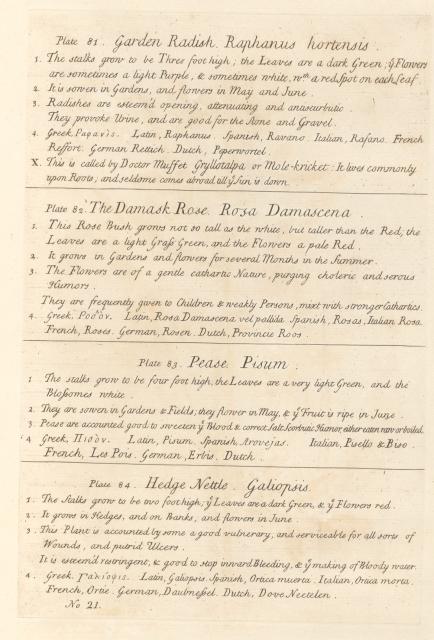 Plate 81. Garden Radish. Raphanus hortensis.
1. The stalks grow to be Three foot high; the Leaves are a dark Green; ỹ Flowers
are sometimes a light Purple, & sometimes white, wth a red spot on each Leaf.
2. It is sowen in Gardens, and flowers in May and June.
3. Radishes are esteem'd opening, attenuating and antiscurbutic.
They provoke Urine, and are good for the Stone and Gravel.
4. Greek, Ραφανις. Latin, Raphanus. Spanish, Ravano. Italian, Rafano. French
Reffort. German Rettich. Dutch, Peperwortel.
X. This is called by Doctor Muffet Gryllotalpa or Mole-kricket: It lives commonly
upon Roots; and seldome comes abroad till ỹ Sun is down.
Plate 82. The Damask Rose. Rosa Damascena.
1. This Rose Bush grows not so tall as the white, but taller than the Red; the
Leaves are a light Grass Green, and the Flowers a pale Red.
2. It grows in Gardens and flowers for several Months in the Summer.
3. The Flowers are of a gentle cathartic Nature, purging choleric and serous
Humors.
They are frequently given to Children & weakly Persons, mixt with stronger Cathartics.
4. Greek, Ροδον. Latin, Rosa Damascena vel pallida. Spanish, Rosas, Italian Rosa.
French, Roses. German, Rosen. Dutch, Provincie Roos.
Plate 83. Pease. Pisum.
1 The stalks grow to be four foot high, the Leaves are a very light Green, and the
Blossomes white.
2. They are sowen in Gardens & Fields; they flower in May, & ỹ Fruit is ripe in June.
3. Pease are accounted good to sweeten ỹ Blood & correct Salt Scorbutic Humor, either eaten raw or boiled.
4 Greek, Πισον. Latin, Pisum. Spanish, Arovejas. Italian, Pisello & Biso.
French, Les Pois. German, Erbis. Dutch.
Plate 84. Hedge Nettle. Galiopsis.
1. The Stalks grow to be two foot high; ỹ Leaves are a dark Green, & ỹ Flowers red.
2. It grows in Hedges, and on Banks, and flowers in June.
3. This Plant is accounted by some a good vulnerary, and serviceable for all sorts of
Wounds, and putrid Ulcers.
It is esteem'd restringent, & good to stop inward Bleeding, & ỹ making of Bloody water.
4. Greek. Γαλιοψις. Latin, Galiopsis. Spanish, Ortica muerta. Italian, Ortica morta.
French, Ortie. German, Daubnessel. Dutch, Dove Neetelen.
No 21.